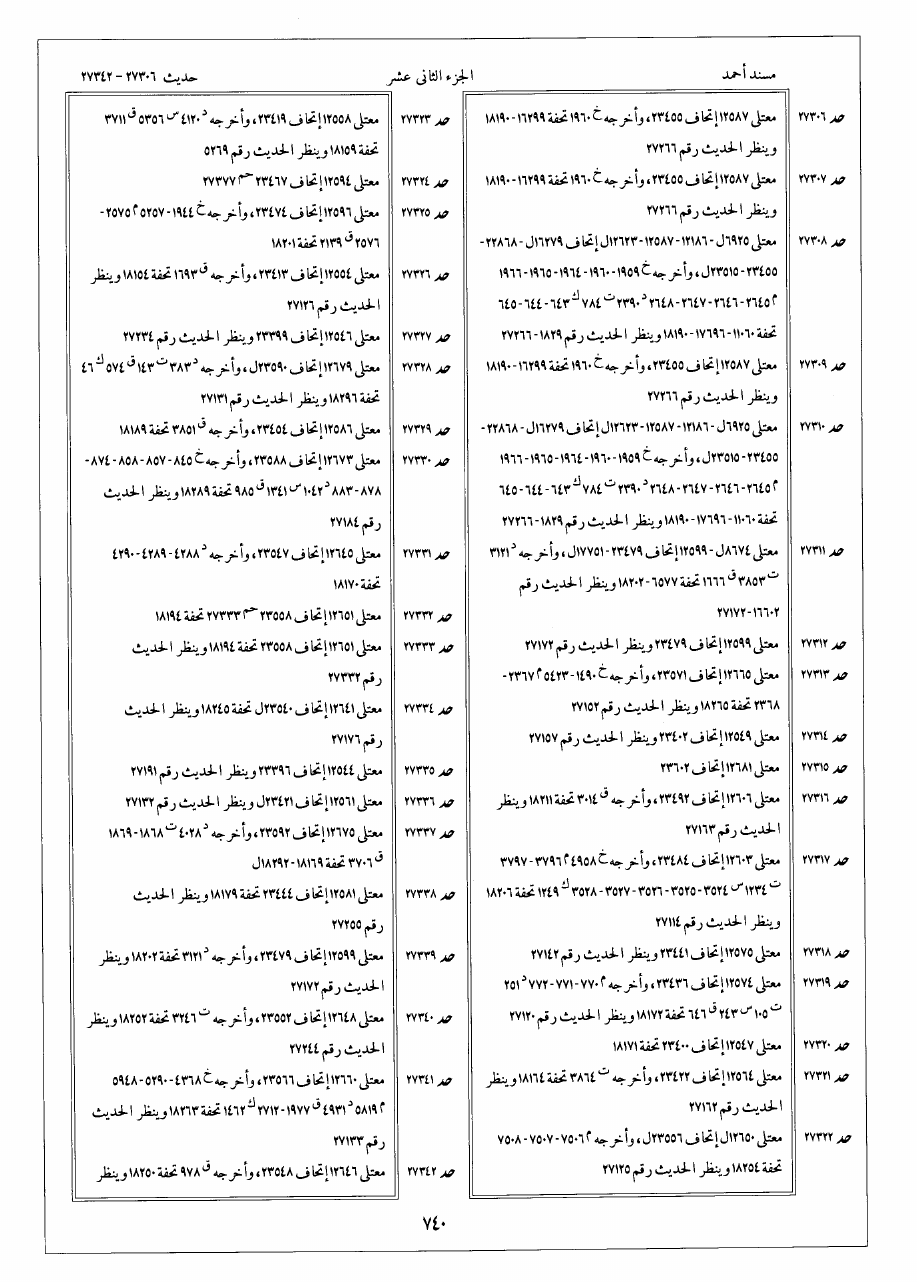 مسند أحمد
الجزء الثانى عشر
حديث ٢٧٣٠٦ - ٢٧٣٤٢
حد ٢٧٣٠٦ معتلى ١٢٥٨٧ إتحاف ٢٣٤٥٥، وأخرجه خ ١٩٦٠ تحفة ١٦٢٩٩-١٨١٩٠
وينظر الحديث رقم ٢٧٢٦٦
حد ٢٧٣٠٧ معتلى ١٢٥٨٧ إتحاف ٢٣٤٥٥، وأخرجه خ ١٩٦٠ تحفة ١٦٢٩٩-١٨١٩٠
وينظر الحديث رقم ٢٧٢٦٦
حد ٢٧٣٠٨ معتلى ٦٩٢٥ل-١٢١٨٦-١٢٥٨٧-١٢٦٢٣ل إتحاف ١٦٢٧٩ل-٢٢٨٦٨-
٢٣٤٥٥-٢٣٥١٥ل، وأخرجه خ ١٩٥٩-١٩٦٠-١٩٦٤-١٩٦٥-١٩٦٦
م ٢٦٤٥-٢٦٤٦-٢٦٤٧-٢٦٤٨ د ٢٣٩٠ ت ٧٨٤ ك ٦٤٣-٦٤٤-٦٤٥
تحفة ١١٠٦٠-١٧٦٩٦-١٨١٩٠ وينظر الحديث رقم ١٨٢٩-٢٧٢٦٦
حد ٢٧٣٠٩ معتلى ١٢٥٨٧ إتحاف ٢٣٤٥٥، وأخرجه خ ١٩٦٠ تحفة ١٦٢٩٩-١٨١٩٠
وينظر الحديث رقم ٢٧٢٦٦
حد ٢٧٣١٠ معتلى ٦٩٢٥ل-١٢١٨٦-١٢٥٨٧-١٢٦٢٣ل إتحاف ١٦٢٧٩ل-٢٢٨٦٨-
٢٣٤٥٥-٢٣٥١٥ل، وأخرجه خ ١٩٥٩-١٩٦٠-١٩٦٤-١٩٦٥-١٩٦٦
م ٢٦٤٥-٢٦٤٦-٢٦٤٧-٢٦٤٨ د ٢٣٩٠ ت ٧٨٤ ك ٦٤٣-٦٤٤-٦٤٥
تحفة ١١٠٦٠-١٧٦٩٦-١٨١٩٠ وينظر الحديث رقم ١٨٢٩-٢٧٢٦٦
حد ٢٧٣١١ معتلى ٨٦٧٤ل-١٢٥٩٩ إتحاف ٢٣٤٧٩-١٧٧٥١ل، وأخرجه د ٣١٢١
ت ٣٨٥٣ ق ١٦٦٦ تحفة ٦٥٧٧-١٨٢٠٢ وينظر الحديث رقم
١٦٦٠٢-٢٧١٧٢
حد ٢٧٣١٢ معتلى ١٢٥٩٩ إتحاف ٢٣٤٧٩ وينظر الحديث رقم ٢٧١٧٢
حد ٢٧٣١٣ معتلى ١٢٦٦٥ إتحاف ٢٣٥٧١، وأخرجه خ ١٤٩٠-٥٤٢٣ م ٢٣٦٧-
٢٣٦٨ تحفة ١٨٢٦٥ وينظر الحديث رقم ٢٧١٥٢
حد ٢٧٣١٤ معتلى ١٢٥٤٩ إتحاف ٢٣٤٠٢ وينظر الحديث رقم ٢٧١٥٧
حد ٢٧٣١٥ معتلى ١٢٦٨١ إتحاف ٢٣٦٠٢
حد ٢٧٣١٦ معتلى ١٢٦٠٦ إتحاف ٢٣٤٩٢، وأخرجه ق ٣٠١٤ تحفة ١٨٢١١ وينظر
الحديث رقم ٢٧١٦٣
حد ٢٧٣١٧ معتلى ١٢٦٠٣ إتحاف ٢٣٤٨٤، وأخرجه خ ٤٩٥٨ م ٣٧٩٦-٣٧٩٧
ت ١٢٣٤ س ٣٥٢٤-٣٥٢٥-٣٥٢٦-٣٥٢٧-٣٥٢٨ ك ١٢٤٩ تحفة ١٨٢٠٦
وينظر الحديث رقم ٢٧١١٤
حد ٢٧٣١٨ معتلى ١٢٥٧٥ إتحاف ٢٣٤٤١ وينظر الحديث رقم ٢٧١٤٢
حد ٢٧٣١٩ معتلى ١٢٥٧٤ إتحاف ٢٣٤٣٦، وأخرجه م ٧٧٠-٧٧١-٧٧٢ د ٢٥١
ت ١٠٥ س ٢٤٣ ق ٦٤٦ تحفة ١٨١٧٢ وينظر الحديث رقم ٢٧١٢٠
حد ٢٧٣٢٠ معتلى ١٢٥٤٧ إتحاف ٢٣٤٠٠ تحفة ١٨١٧١
حد ٢٧٣٢١ معتلى ١٢٥٦٤ إتحاف ٢٣٤٢٢، وأخرجه ت ٣٨٦٤ تحفة ١٨١٦٤ وينظر
الحديث رقم ٢٧١٦٢
حد ٢٧٣٢٢ معتلى ١٢٦٥٠ل إتحاف ٢٣٥٥٦ل، وأخرجه م ٧٥٠٦-٧٥٠٧-٧٥٠٨
تحفة ١٨٢٥٤ وينظر الحديث رقم ٢٧١٢٥
حد ٢٧٣٢٣ معتلى ١٢٥٥٨ إتحاف ٢٣٤١٩، وأخرجه د ٤١٢٠ س ٥٣٥٦ ق ٣٧١١
تحفة ١٨١٥٩ وينظر الحديث رقم ٥٢٦٩
حد ٢٧٣٢٤ معتلى ١٢٥٩٤ إتحاف ٢٣٤٦٧ حم ٢٧٣٧٧
حد ٢٧٣٢٥ معتلى ١٢٥٩٦ إتحاف ٢٣٤٧٤، وأخرجه خ ١٩٤٤-٥٢٥٧ م ٢٥٧٥-
٢٥٧٦ ق ٢١٣٩ تحفة ١٨٢٠١
حد ٢٧٣٢٦ معتلى ١٢٥٥٤ إتحاف ٢٣٤١٣، وأخرجه ق ١٦٩٣ تحفة ١٨١٥٤ وينظر
الحديث رقم ٢٧١٢٦
حد ٢٧٣٢٧ معتلى ١٢٥٤٦ إتحاف ٢٣٣٩٩ وينظر الحديث رقم ٢٧٢٣٤
حد ٢٧٣٢٨ معتلى ١٢٦٧٩ إتحاف ٢٣٥٩٠ل، وأخرجه د ٣٨٣ ت ١٤٣ ق ٥٧٤ ك ٤٦
تحفة ١٨٢٩٦ وينظر الحديث رقم ٢٧١٣١
حد ٢٧٣٢٩ معتلى ١٢٥٨٦ إتحاف ٢٣٤٥٤، وأخرجه ق ٣٨٥١ تحفة ١٨١٨٩
حد ٢٧٣٣٠ معتلى ١٢٦٧٣ إتحاف ٢٣٥٨٨، وأخرجه خ ٨٤٥-٨٥٧-٨٥٨-٨٧٤-
٨٧٨-٨٨٣ د ١٠٤٢ س ١٣٤١ ق ٩٨٥ تحفة ١٨٢٨٩ وينظر الحديث
رقم ٢٧١٨٤
حد ٢٧٣٣١ معتلى ١٢٦٤٥ إتحاف ٢٣٥٤٧، وأخرجه د ٤٢٨٨-٤٢٨٩-٤٢٩٠
تحفة ١٨١٧٠
حد ٢٧٣٣٢ معتلى ١٢٦٥١ إتحاف ٢٣٥٥٨ حم ٢٧٣٣٣ تحفة ١٨١٩٤
حد ٢٧٣٣٣ معتلى ١٢٦٥١ إتحاف ٢٣٥٥٨ تحفة ١٨١٩٤ وينظر الحديث
رقم ٢٧٣٣٢
حد ٢٧٣٣٤ معتلى ١٢٦٤١ إتحاف ٢٣٥٤٠ل تحفة ١٨٢٤٥ وينظر الحديث
رقم ٢٧١٧٦
حد ٢٧٣٣٥ معتلى ١٢٥٤٤ إتحاف ٢٣٣٩٦ وينظر الحديث رقم ٢٧١٩١
حد ٢٧٣٣٦ معتلى ١٢٥٦١ إتحاف ٢٣٤٢١ل وينظر الحديث رقم ٢٧١٣٢
حد ٢٧٣٣٧ معتلى ١٢٦٧٥ إتحاف ٢٣٥٩٢، وأخرجه د ٤٠٢٨ ت ١٨٦٨-١٨٦٩
ق ٣٧٠٦ تحفة ١٨١٦٩-١٨٢٩٢ل
حد ٢٧٣٣٨ معتلى ١٢٥٨١ إتحاف ٢٣٤٤٤ تحفة ١٨١٧٩ وينظر الحديث
رقم ٢٧٢٥٥
حد ٢٧٣٣٩ معتلى ١٢٥٩٩ إتحاف ٢٣٤٧٩، وأخرجه د ٣١٢١ تحفة ١٨٢٠٢ وينظر
الحديث رقم ٢٧١٧٢
حد ٢٧٣٤٠ معتلى ١٢٦٤٨ إتحاف ٢٣٥٥٢، وأخرجه ت ٣٢٤٦ تحفة ١٨٢٥٢ وينظر
الحديث رقم ٢٧٢٤٤
حد ٢٧٣٤١ معتلى ١٢٦٦٠ إتحاف ٢٣٥٦٦، وأخرجه خ ٤٣٦٨-٥٢٩٠-٥٩٤٨
م ٥٨١٩ د ٤٩٣١ ق ١٩٧٧-٢٧١٢ ك ١٤٦٢ تحفة ١٨٢٦٣ وينظر الحديث
رقم ٢٧١٣٣
حد ٢٧٣٤٢ معتلى ١٢٦٤٦ إتحاف ٢٣٥٤٨، وأخرجه ق ٩٧٨ تحفة ١٨٢٥٠ وينظر
٧٤٠